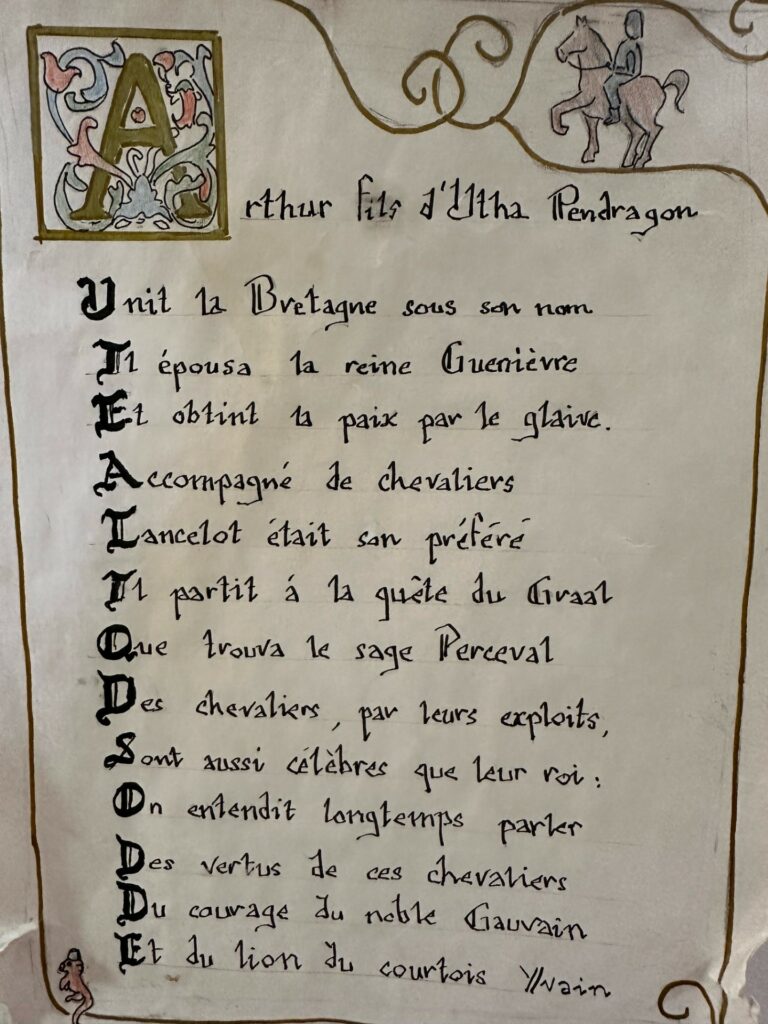 Arthur fils d'Utha Pendragon
Unit la Bretagne sous son nom
Il épousa la reine Guenièvre
Et obtint la paix par le glaive.
Accompagné de chevaliers
Lancelot était son préféré
Il partit á la quête du Graal
Que trouva le sage Perceval
Des chevaliers, par leurs exploits,
Sont aussi célèbres que leur roi :
On entendit longtemps parler
Des vertus de ces chevaliers
Du courage du noble Gauvain
Et du lion du courtois Yvain